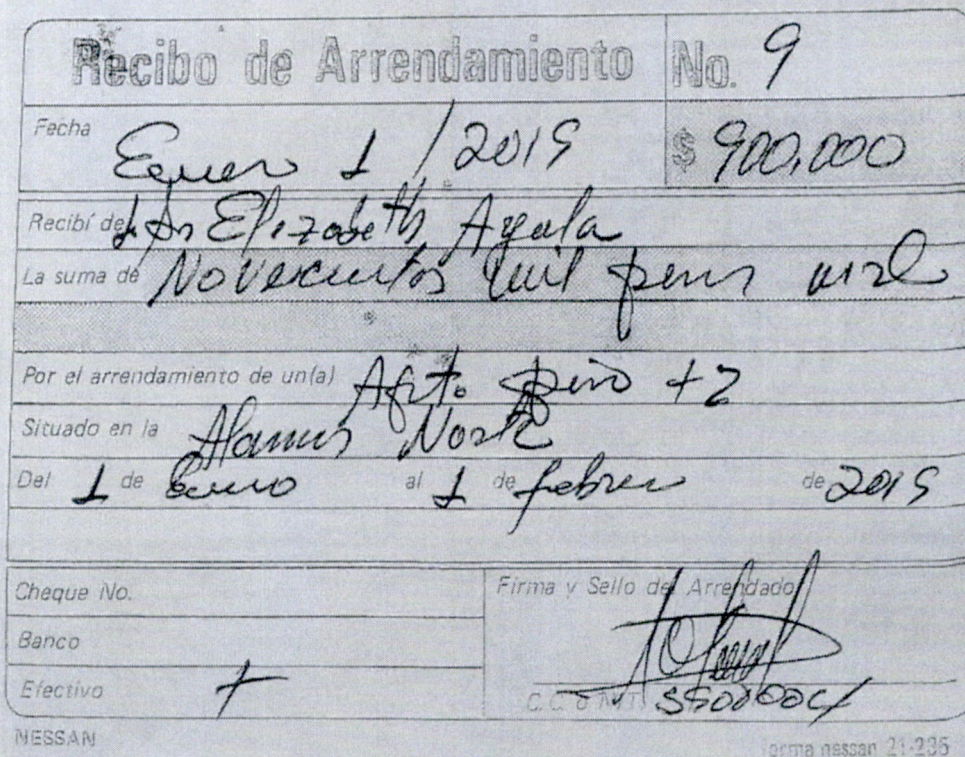 Recibo de Arrendamiento No. 9
Fecha Enero 1 / 2019 $ 900.000
Recibí de Elizabeth Ayala
La suma de Novecientos mil pesos
Por el arrendamiento de un(a) Apto piso #2
Situado en la Alamos Norte
Del 1 de Enero al 1 de febrero de 2019
Cheque No.
Banco
Efectivo
Firma y Sello del Arrendador
C.C. o NIT.
NESSAN
forma nessan 21-235